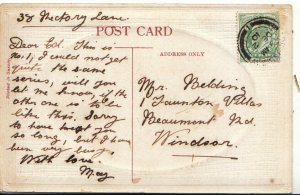 33 Hectory Lane.
POST CARD
ADDRESS ONLY
Dear Ed. This is
No. 1, I could not get
quite the same
series, will you
let me know, if the
other one is to be
like this. Sorry
to have kept you
so long, but I have
been very busy.
With love.
May
Mr. Belding
1 Taunton Villas
Beaumont Rd.
Windsor.